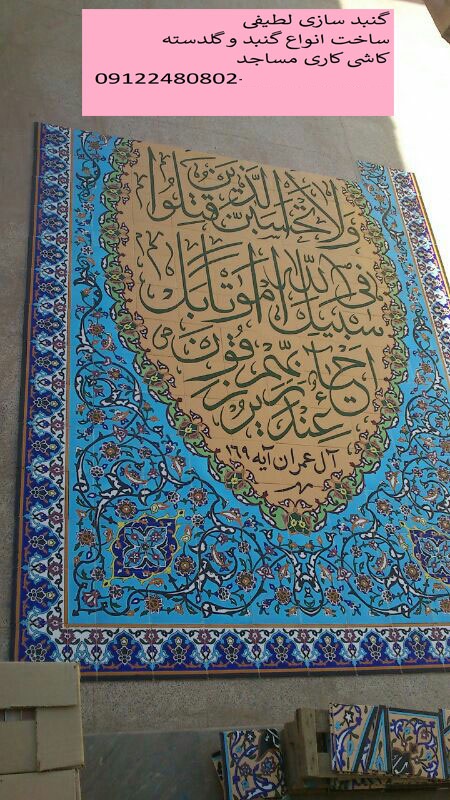 گنبد سازی لطیفی
ساخت انواع گنبد و گلدسته
کاشی کاری مساجد
09122480802.
ولا تحسبن الذین قتلوا
فی سبیل الله امواتا بل
احیاء عند ربهم یرزقون
آل عمران آیه ۱۶۹